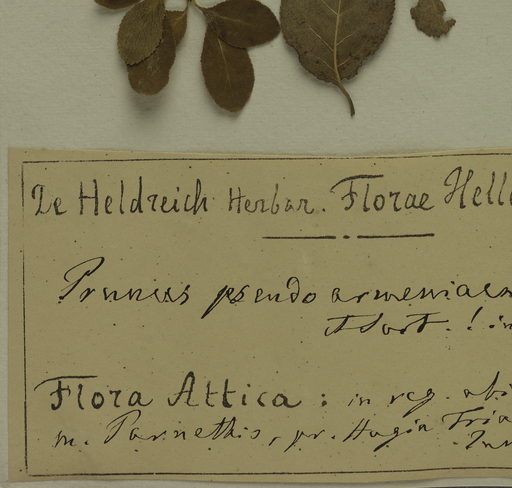 De Heldreich Herbar. Florae Hell
Prunus pseudoarmeniaca
et Sart. ! in
Flora Attica : in reg. abi
m. Parnethis, pr. Hagia Tria
Jun